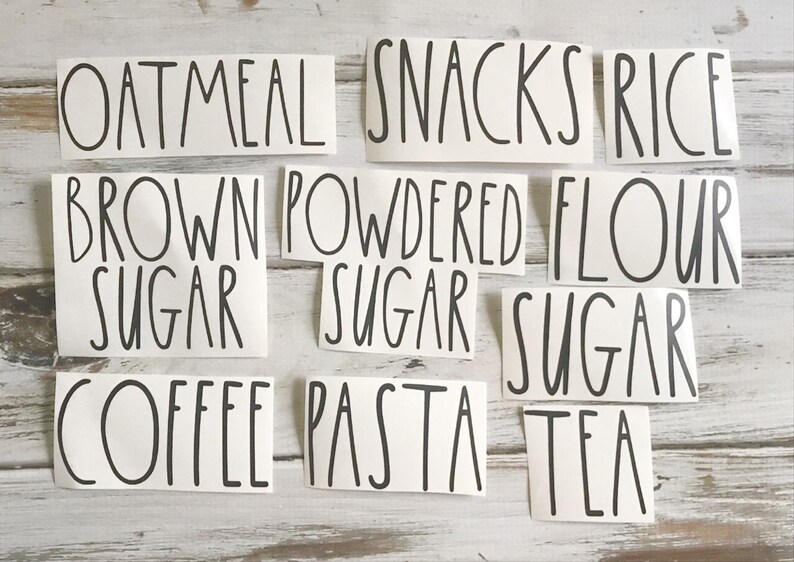 OATMEAL
SNACKS
RICE
BROWN
SUGAR
POWDERED
SUGAR
FLOUR
SUGAR
COFFEE
PASTA
TEA